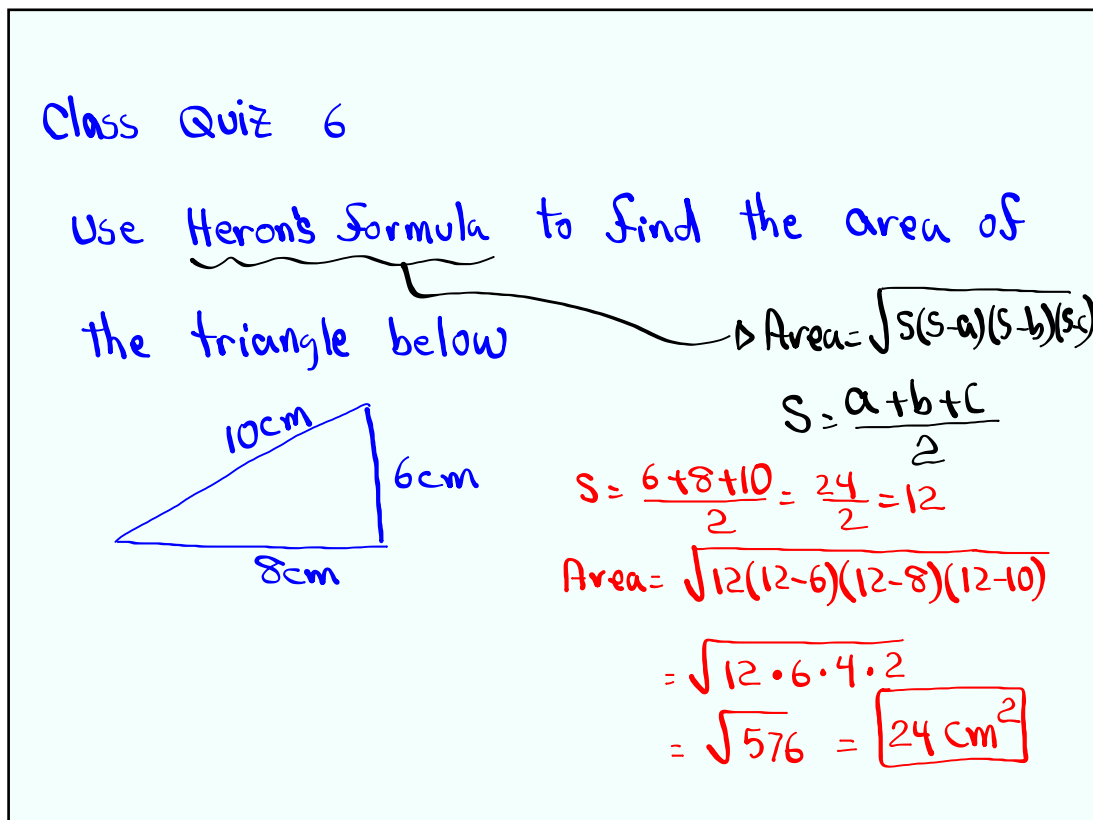 Class Quiz 6
Use Heron's formula to find the area of
the triangle below
Area = √S(S-a)(S-b)(S-c)
S = a+b+c / 2
10cm
6cm
8cm
S = 6+8+10 / 2 = 24 / 2 = 12
Area = √12(12-6)(12-8)(12-10)
= √12•6•4•2
= √576 = 24 cm²